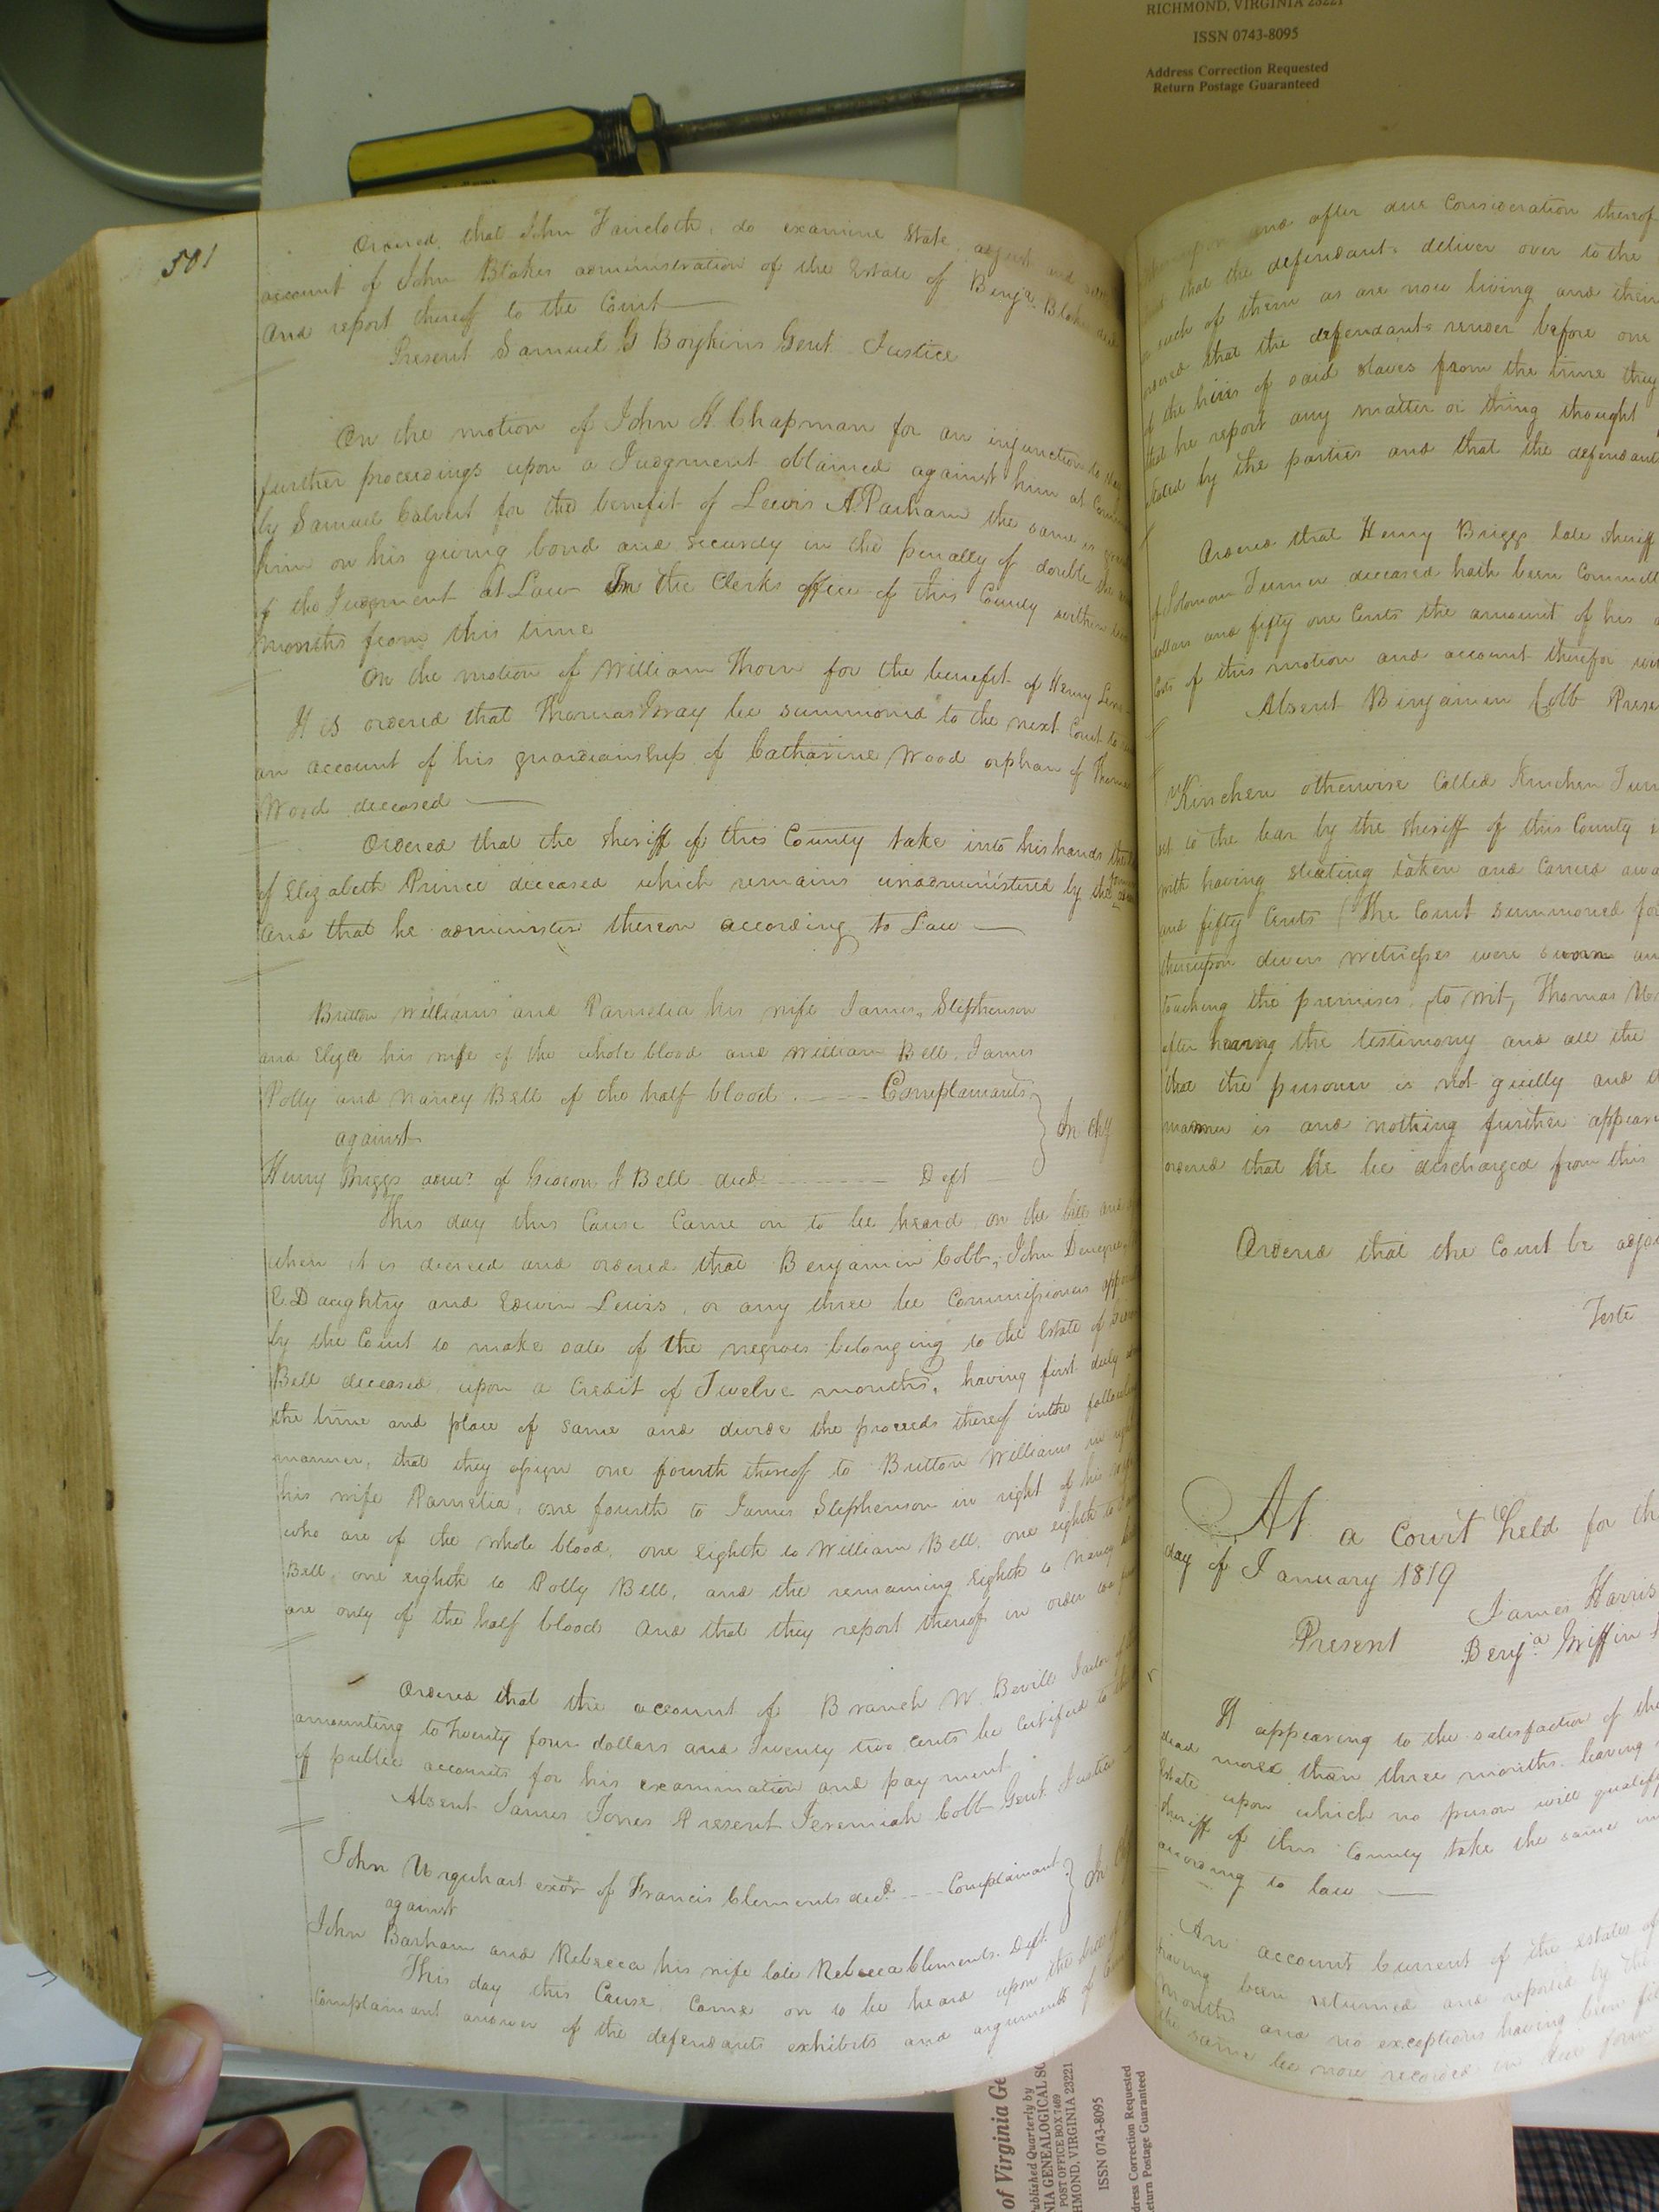 RICHMOND, VIRGINIA 23221
ISSN 0743-8095
Address Correction Requested
Return Postage Guaranteed
501
Ordered that John Faircloth, do examine state, adjust and
account of John Blakes administration of the Estate of Benja. Blake
And report thereof to the Court
Present Samuel G Boykins Gent Justice
On the motion of John H. Chapman for an injunction to
further proceedings upon a Judgment obtained against him at
by Samuel Calvert for the benefit of Lewis A. Parham the same is
him on his giving bond and security in the penalty of double the
of the Judgment at Law In the Clerks office of this County within
months from this time
On the motion of William Thorn for the benefit of Henry
It is ordered that Thomas Gray be summoned to the next Court to
an account of his guardianship of Catharine Wood orphan of Thomas
Wood deceased
Ordered that the sheriff of this County take into his hands the
of Elizabeth Prince deceased which remains unadministered by the
And that he administer thereon according to Law
Britton Williams and Pamelia his wife James Stephenson
and Eliza his wife of the whole blood and William Bell, James
Polly and Nancy Bell of the half blood. Complainants
against
In Chy
Henry Briggs admr. of Gideon J Bell decd. Deft
This day this Cause Came on to be heard on the bill and
when it is decreed and ordered that Benjamin Cobb, John
E Daughtry and Edwin Lewis, or any three be Commissioners
by the Court to make sale of the negroes belonging to the Estate of
Bell deceased, upon a Credit of Twelve months, having first duly
the time and place of same and divide the proceeds thereof in the
manner, that they assign one fourth thereof to Britton Williams in
his wife Pamelia, one fourth to James Stephenson in right of his
who are of the whole blood, one eighth to William Bell, one eighth to
Bell, one eighth to Polly Bell, and the remaining eighth to Nancy
are only of the half blood And that they report thereof in order
Ordered that the account of Branch W. Bevill Jailor of
amounting to Twenty four dollars and Twenty two cents be certified to the
of public accounts for his examination and payment
Absent James Jones Present Jeremiah Cobb Gent Justice
John Urquhart exor of Francis Clements decd. Complainant
against
In
John Barham and Rebecca his wife late Rebecca Clements. Deft.
This day this Cause Came on to be heard upon the bill of
Complainant answer of the defendants exhibits and arguments of
and after due Consideration thereof
that the defendants deliver over to the
such of them as are now living and their
ordered that the defendants render before one
of the hires of said slaves from the time they
that he report any matter or thing thought
stated by the parties and that the defendant
Ordered that Henry Briggs late sheriff
of Solomon Turner deceased hath been
dollars and fifty one Cents the amount of his
Costs of this motion and account therefor
Absent Benjamin Cobb
Kinchen otherwise Called Kinchen
set to the bar by the sheriff of this County
with having stealing taken and Carried
and fifty Cents (The Court summoned for
thereupon divers witnesses were sworn
touching the premises, to wit, Thomas
after hearing the testimony and all the
that the prisoner is not guilty and
manner is and nothing further
ordered that he be discharged from this
Ordered that the Court be
Teste
At a Court held for the
day of January 1819
James Harris
Present
Benja. Griffin
It appearing to the satisfaction of the
dead more than three months leaving
Estate upon which no person will
sheriff of this County take the same
according to law
An account Current of the estates of
having been returned and reported by the
months and no exceptions having been
the same be now recorded in due form
of Virginia
ublished Quarterly by
POST OFFICE BOX 7469
HMOND, VIRGINIA 23221
ISSN 0743-8095
dress Correction Requested
eturn Postage Guaranteed